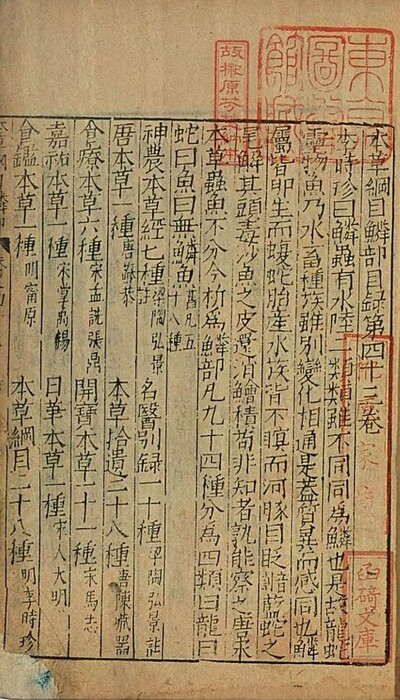 本草綱目鱗部目録第四十三卷
李時珍曰鱗蟲有水陸二類類雖不同同為鱗也是故龍蛇
靈物魚乃水畜種族雖別變化相通是蓋質異而感同也鱗
屬皆卵生而蝮蛇胎產水族皆不瞑而河豚目眨音劄藍蛇之
尾解其頭毒沙魚之皮還消鱠積苟非知者孰能察之唐宋
本草蟲魚不分今析為鱗部凡九十四種分為四類曰龍曰
蛇曰魚曰無鱗魚舊凡五十八種
神農本草經七種梁陶弘景註 名醫別録一十種梁陶弘景註
唐本草一種唐蘇恭 本草拾遺二十八種唐陳藏器
食療本草六種宋孟詵張鼎 開寶本草一十一種宋馬志
嘉祐本草一種宋掌禹錫 日華本草一種宋人大明
食鑑本草一種明甯原 本草綱目二十八種明李時珍
函碕文庫